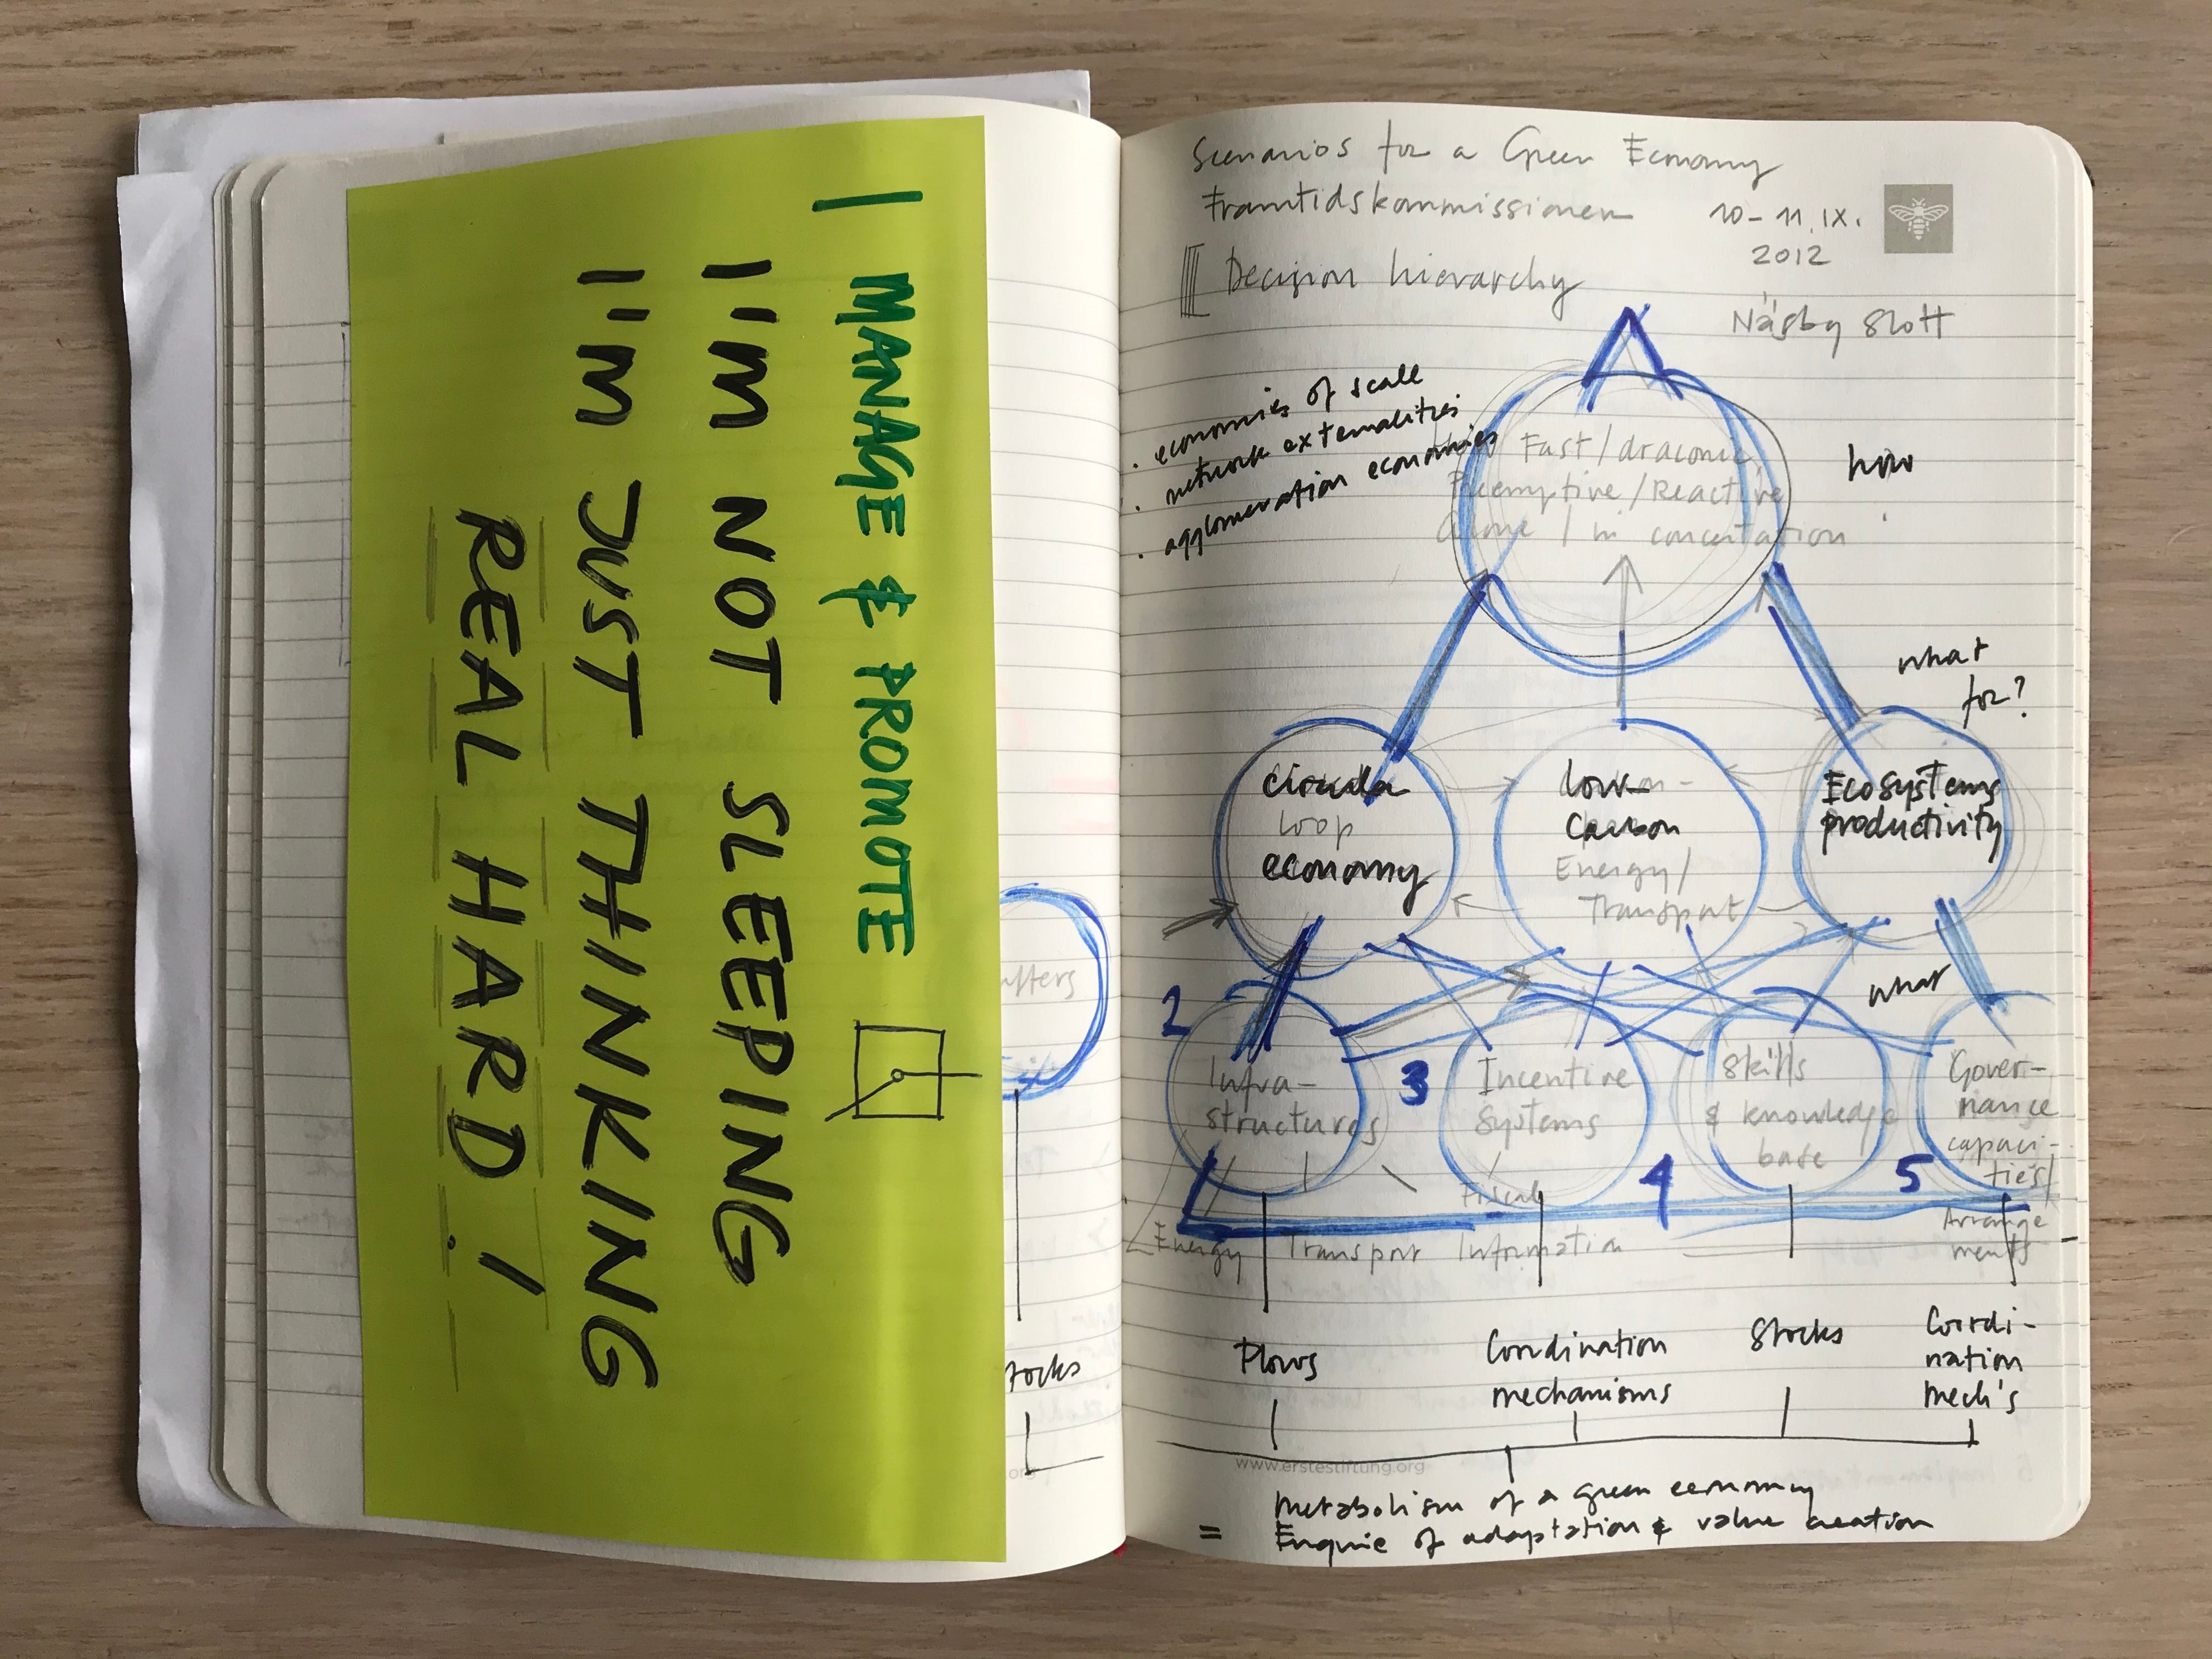 I MANAGE & PROMOTE
I'M NOT SLEEPING
I'M JUST THINKING
REAL HARD!
Scenarios for a Green Economy
Framtidskommissionen
10-11.IX.
2012
Decision hierarchy
Näsby Slott
• economies of scale
• network externalities
• agglomeration economies
Fast/draconic,
Preemptive/Reactive
Alone / in concertation
how
what
for?
circular
loop
economy
low-
Carbon
Energy/
Transport
Ecosystems
productivity
what
2
3
4
5
Infra-
structures
Incentive
Systems
Skills
& knowledge
base
Gover-
nance
capaci-
ties/
Arrange
ments
Fiscal
Energy
Transport
Information
Flows
Coordination
mechanisms
Stocks
Coordi-
nation
Mech's
www.erstestiftung.org
Metabolism of a green economy
= Engine of adaptation & value creation